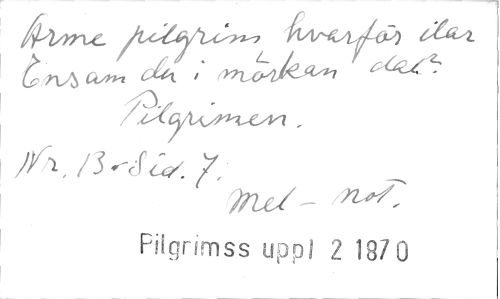 Arme pilgrim hvarför ilar
Ensam du i mörkan dal?
Pilgrimen.
Nr. 13. Sid. 7.
Mel - not.
Pilgrimss uppl 2 1870